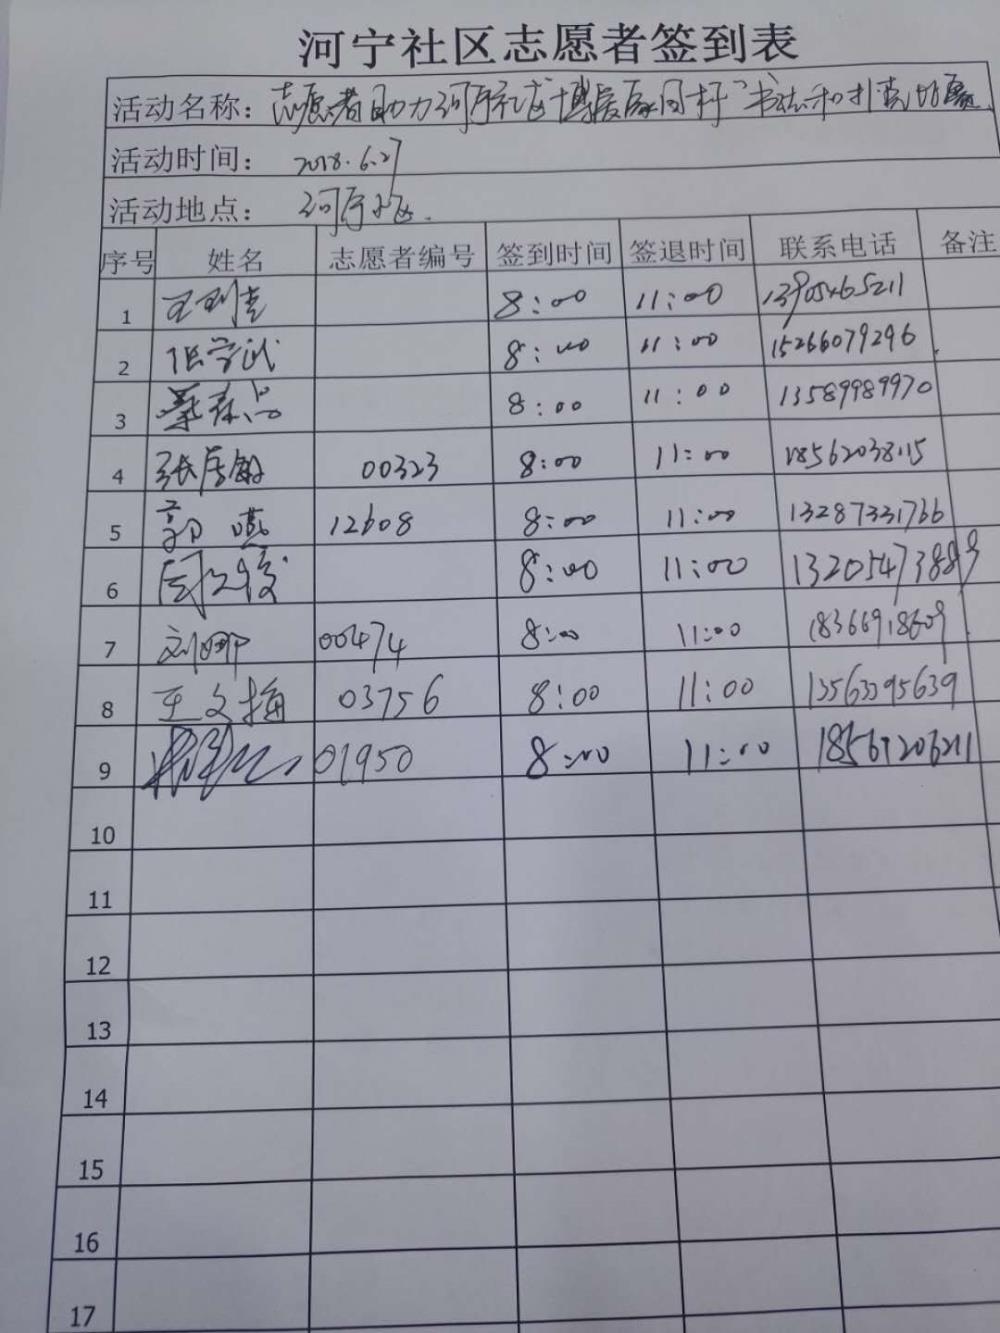 河宁社区志愿者签到表
活动名称: 志愿者助力河宁社区
活动时间: 2018.6.27
活动地点: 河宁社区.
序号 姓名 志愿者编号 签到时间 签退时间 联系电话 备注
1 8:00 11:00 13905465211
2 张学武 8:00 11:00 15266079296
3 8:00 11:00 13589989970
4 00323 8:00 11:00
5 郭 12608 8:00 11:00 13287331766
6 8:00 11:00 13205473889
7 刘娜 00474 8:00 11:00 18366918609
8 王文梅 03756 8:00 11:00 13563395639
9 01950 8:00 11:00 18561206211
10
11
12
13
14
15
16
17